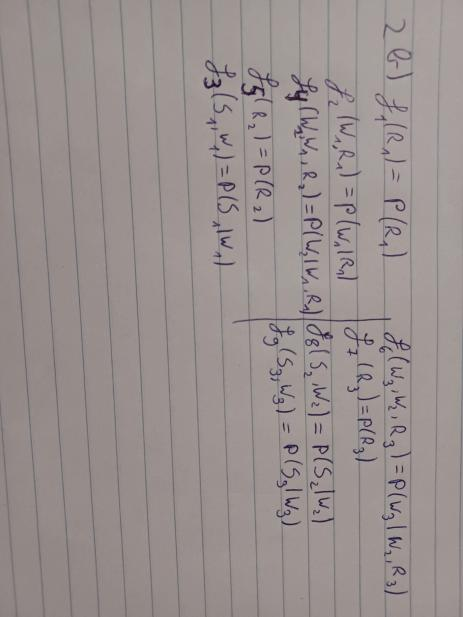 2 b) f1(R1) = P(R1)
f2(W1,R1) = P(W1|R1)
f4(W2,W1,R2) = P(W2|W1,R1)
f5(R2) = P(R2)
f3(S1,W1) = P(S1|W1)
f6(W3,W2,R3) = P(W3|W2,R3)
f7(R3) = P(R3)
f8(S2,W2) = P(S2|W2)
f9(S3,W3) = P(S3|W3)